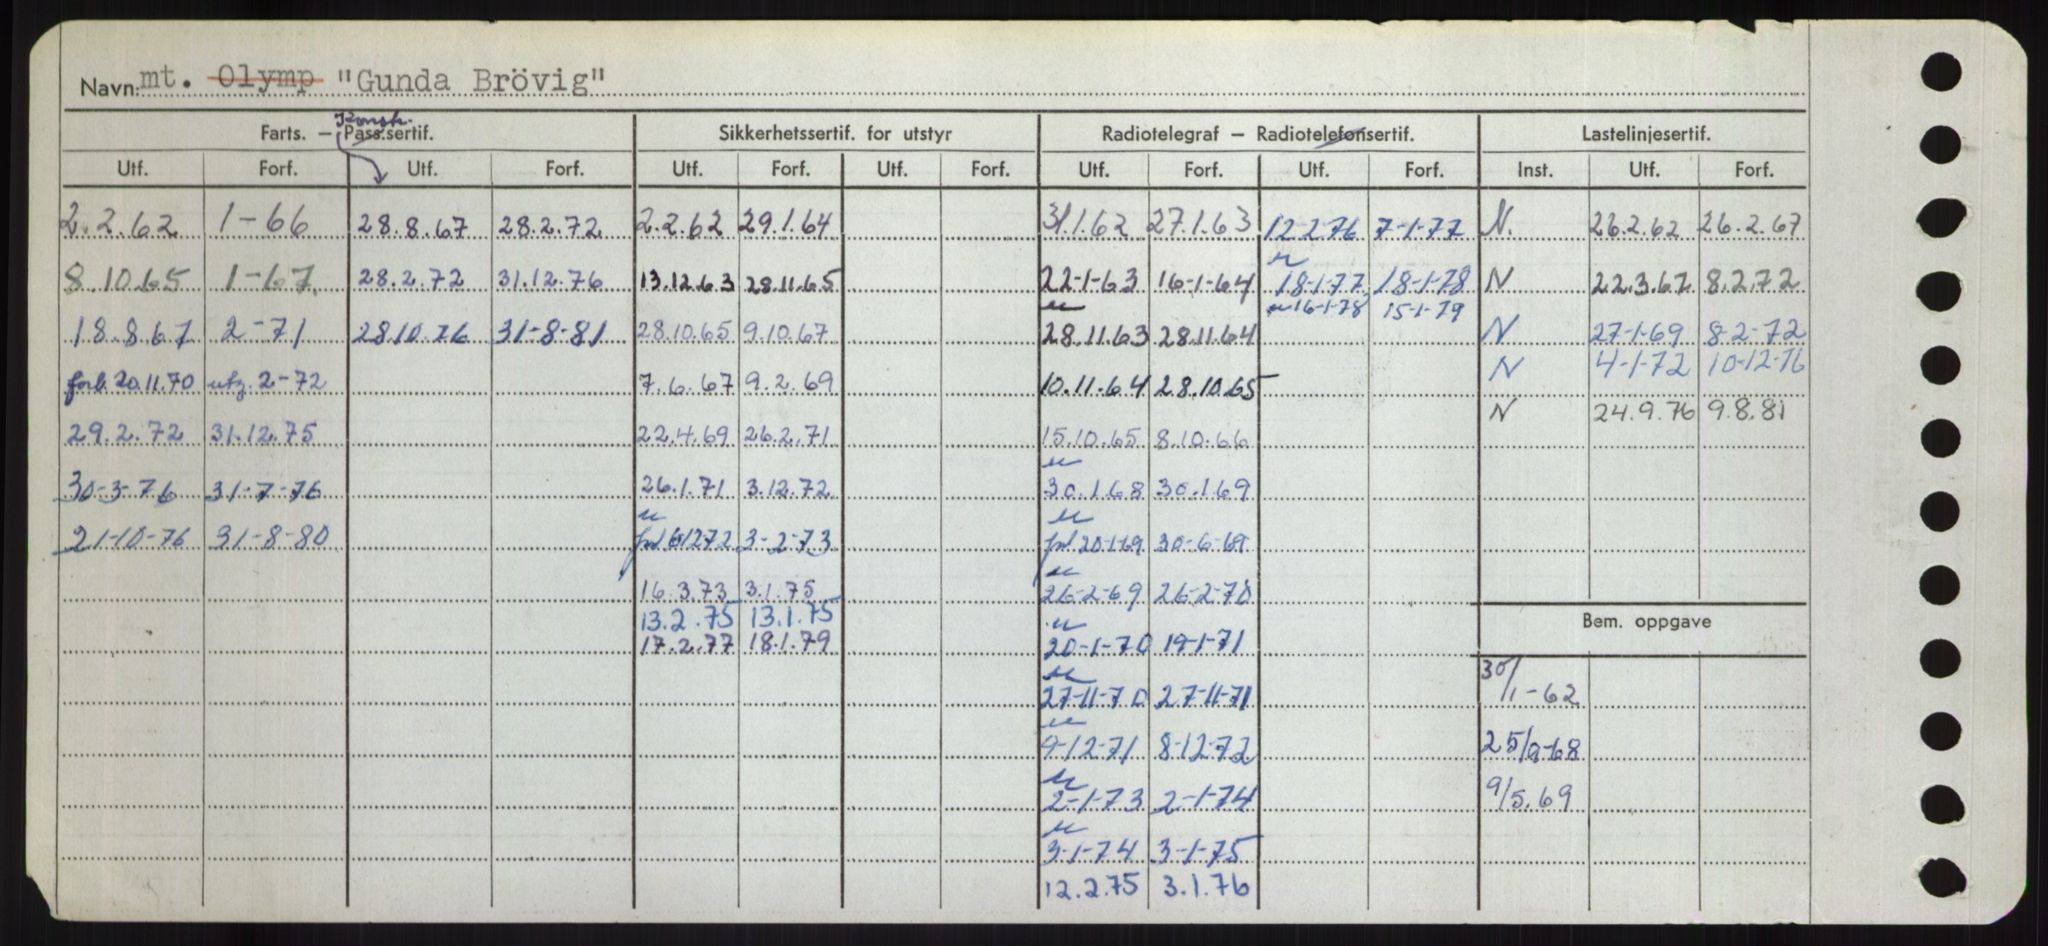 Navn: mt. Olymp "Gunda Brövig"
Konstr.
Farts. – Pass.sertif. Sikkerhetssertif. for utstyr Radiotelegraf – Radiotelefonsertif. Lastelinjesertif.
Utf. Forf. Utf. Forf. Utf. Forf. Utf. Forf. Utf. Forf. Utf. Forf. Inst. Utf. Forf.
2.2.62 1-66 28.8.67 28.2.72 2.2.62 29.1.64 31.1.62 27.1.63 12-2-76 7-1-77 N. 26.2.62 26.2.67
8.10.65 1-67. 28.2.72 31.12.76 13.12.63 28.11.65 22-1-63 16-1-64 18-1-77 18-1-78 N 22.3.67 8.2.72
16-1-78 15-1-79
18.8.67 2-71 28.10.76 31-8-81 28.10.65 9.10.67 28.11.63 28.11.64 N 27-1-69 8-2-72
N 4-1-72 10-12-76
forl. 20.11.70 utg. 2-72 7.6.67 9.2.69 10.11.64 28.10.65
N 24.9.76 9.8.81
29.2.72 31.12.75 22.4.69 26.2.71 15.10.65 8.10.66
30-3-76 31-7-76 26.1.71 3.12.72 30.1.68 30.1.69
21-10-76 31-8-80 forl 6.12.72 3-2-73 forl 20-1-69 30-6-69
16.3.73 3.1.75 26-2-69 26-2-70
13.2.75 13.1.75
Bem. oppgave
17.2.77 18.1.79 20-1-70 19-1-71
30/1-62
27-11-70 27-11-71
9-12-71 8-12-72 25/9-68
2-1-73 2-1-74 9/5.69
3-1-74 3-1-75
12.2.75 3.1.76